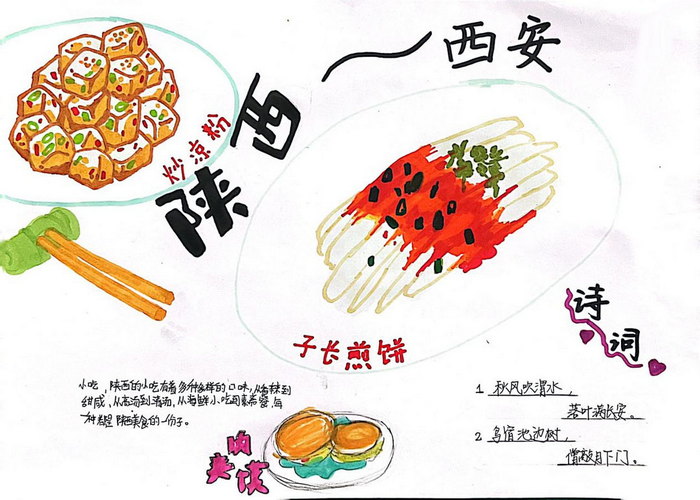 陕西
西安
炒凉粉
子长煎饼
诗词
小吃，陕西的小吃有着多种多样的口味，从香辣到
甜咸，从
种都是陕西美食的一份子。
肉夹馍
1 秋风吹渭水，
落叶满长安。
2 鸟宿池边树，
僧敲月下门。